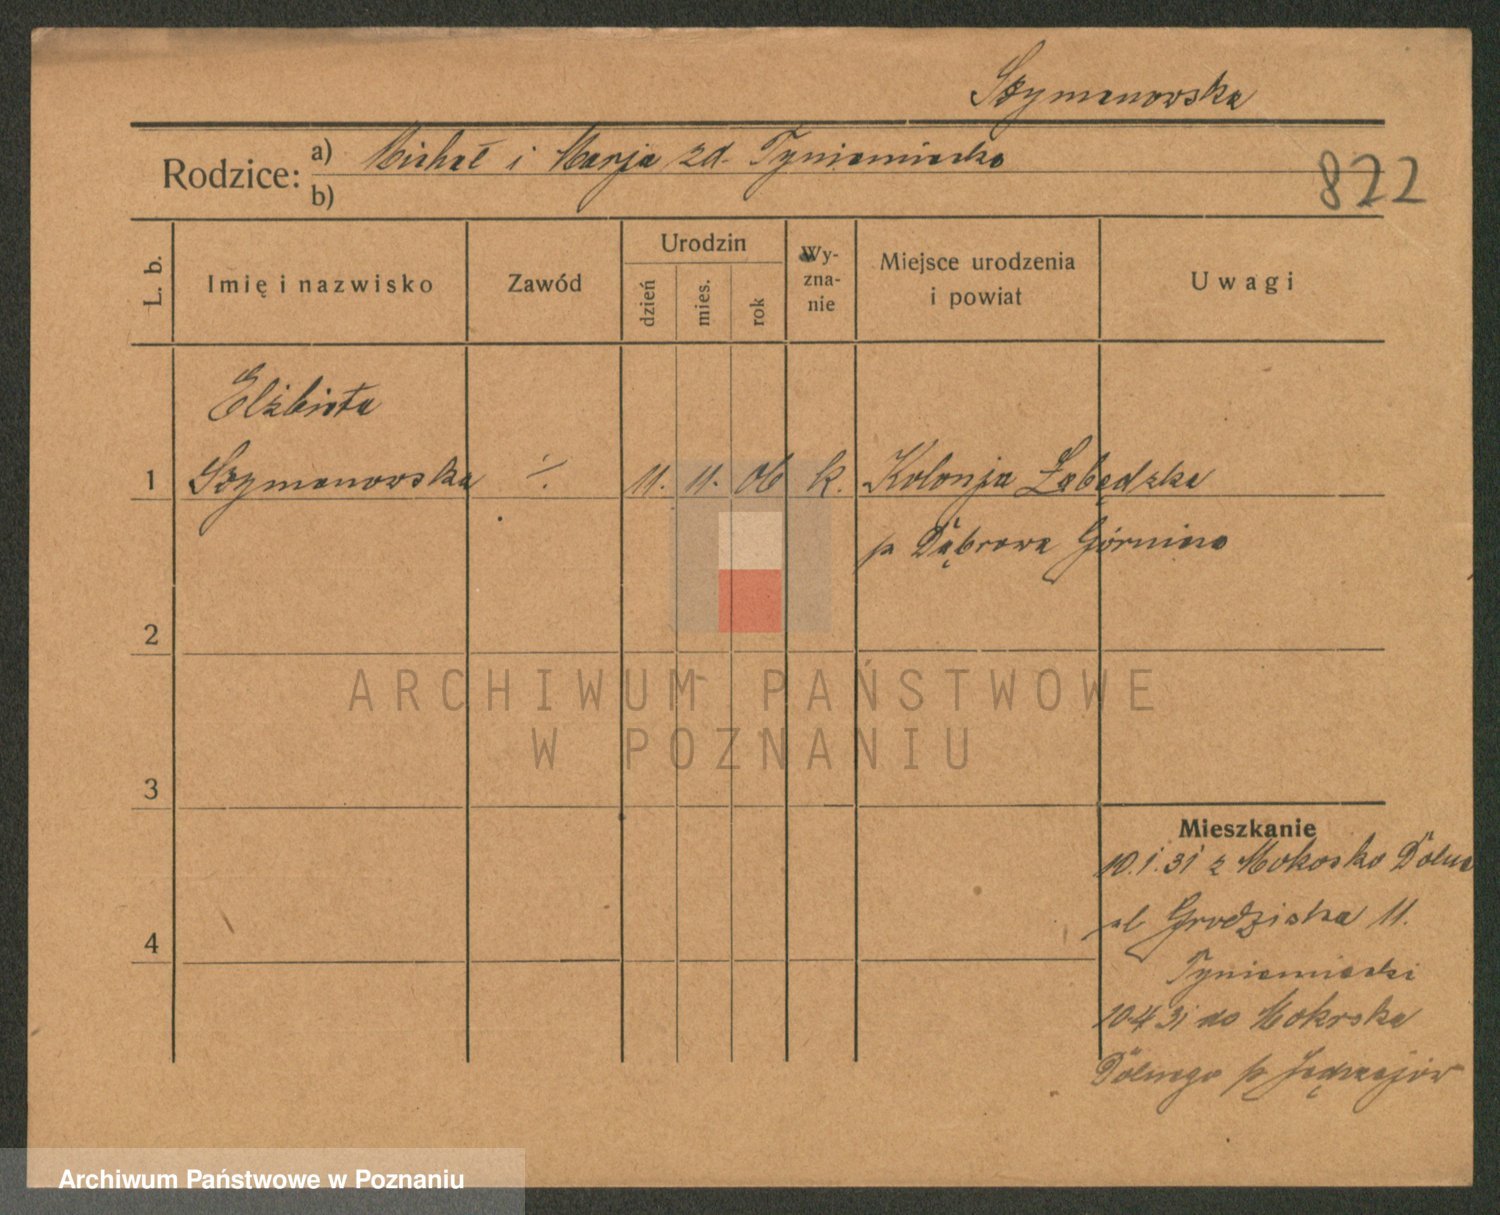 Szymanowska
Rodzice: a) Michał i Marja zd. Tyniemiecka
b)
822
L. b.
Imię i nazwisko
Zawód
Urodzin
dzień
mies.
rok
Wy-
zna-
nie
Miejsce urodzenia
i powiat
Uwagi
Elżbieta
1 Szymanowska ·/. 11. 11. 06 k. Kolonja Łabędzka
p Dąbrowa Górnicza
2
ARCHIWUM PAŃSTWOWE
W POZNANIU
3
Mieszkanie
10.1.31 z Mokrsko Dolne
ul Grodziska 11.
4
Tyniemiecki
10.4 31 do Mokrska
Dolnego p Jędrzejów
Archiwum Państwowe w Poznaniu